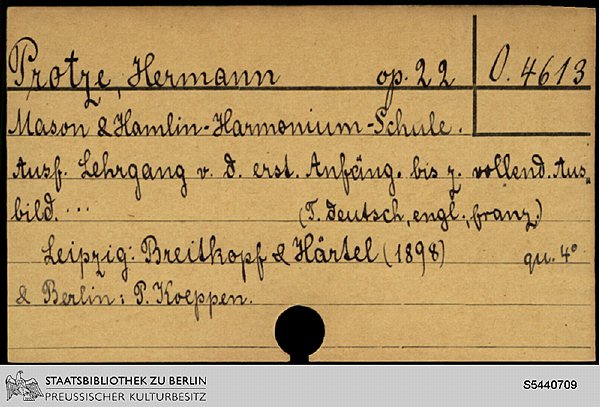 Protze, Hermann op. 22 O. 4613
Mason & Hamlin-Harmonium-Schule.
Ausf. Lehrgang v. d. erst. Anfäng. bis z. vollend. Aus-
bild. ... (T. deutsch, engl., franz.)
Leipzig: Breitkopf & Härtel (1898) qu. 4°
& Berlin: P. Koeppen.
STAATSBIBLIOTHEK ZU BERLIN
PREUSSISCHER KULTURBESITZ
S5440709